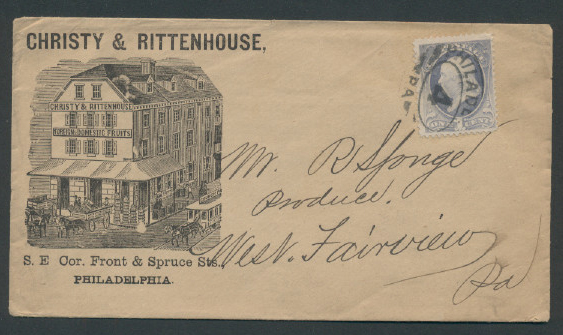 CHRISTY & RITTENHOUSE,
CHRISTY & RITTENHOUSE
FOREIGN & DOMESTIC FRUITS
S. E Cor. Front & Spruce Sts.,
PHILADELPHIA.
PHILAD'A
PA
4
ONE CENT
Mr. R Sponge
Produce.
West. Fairview
Pa